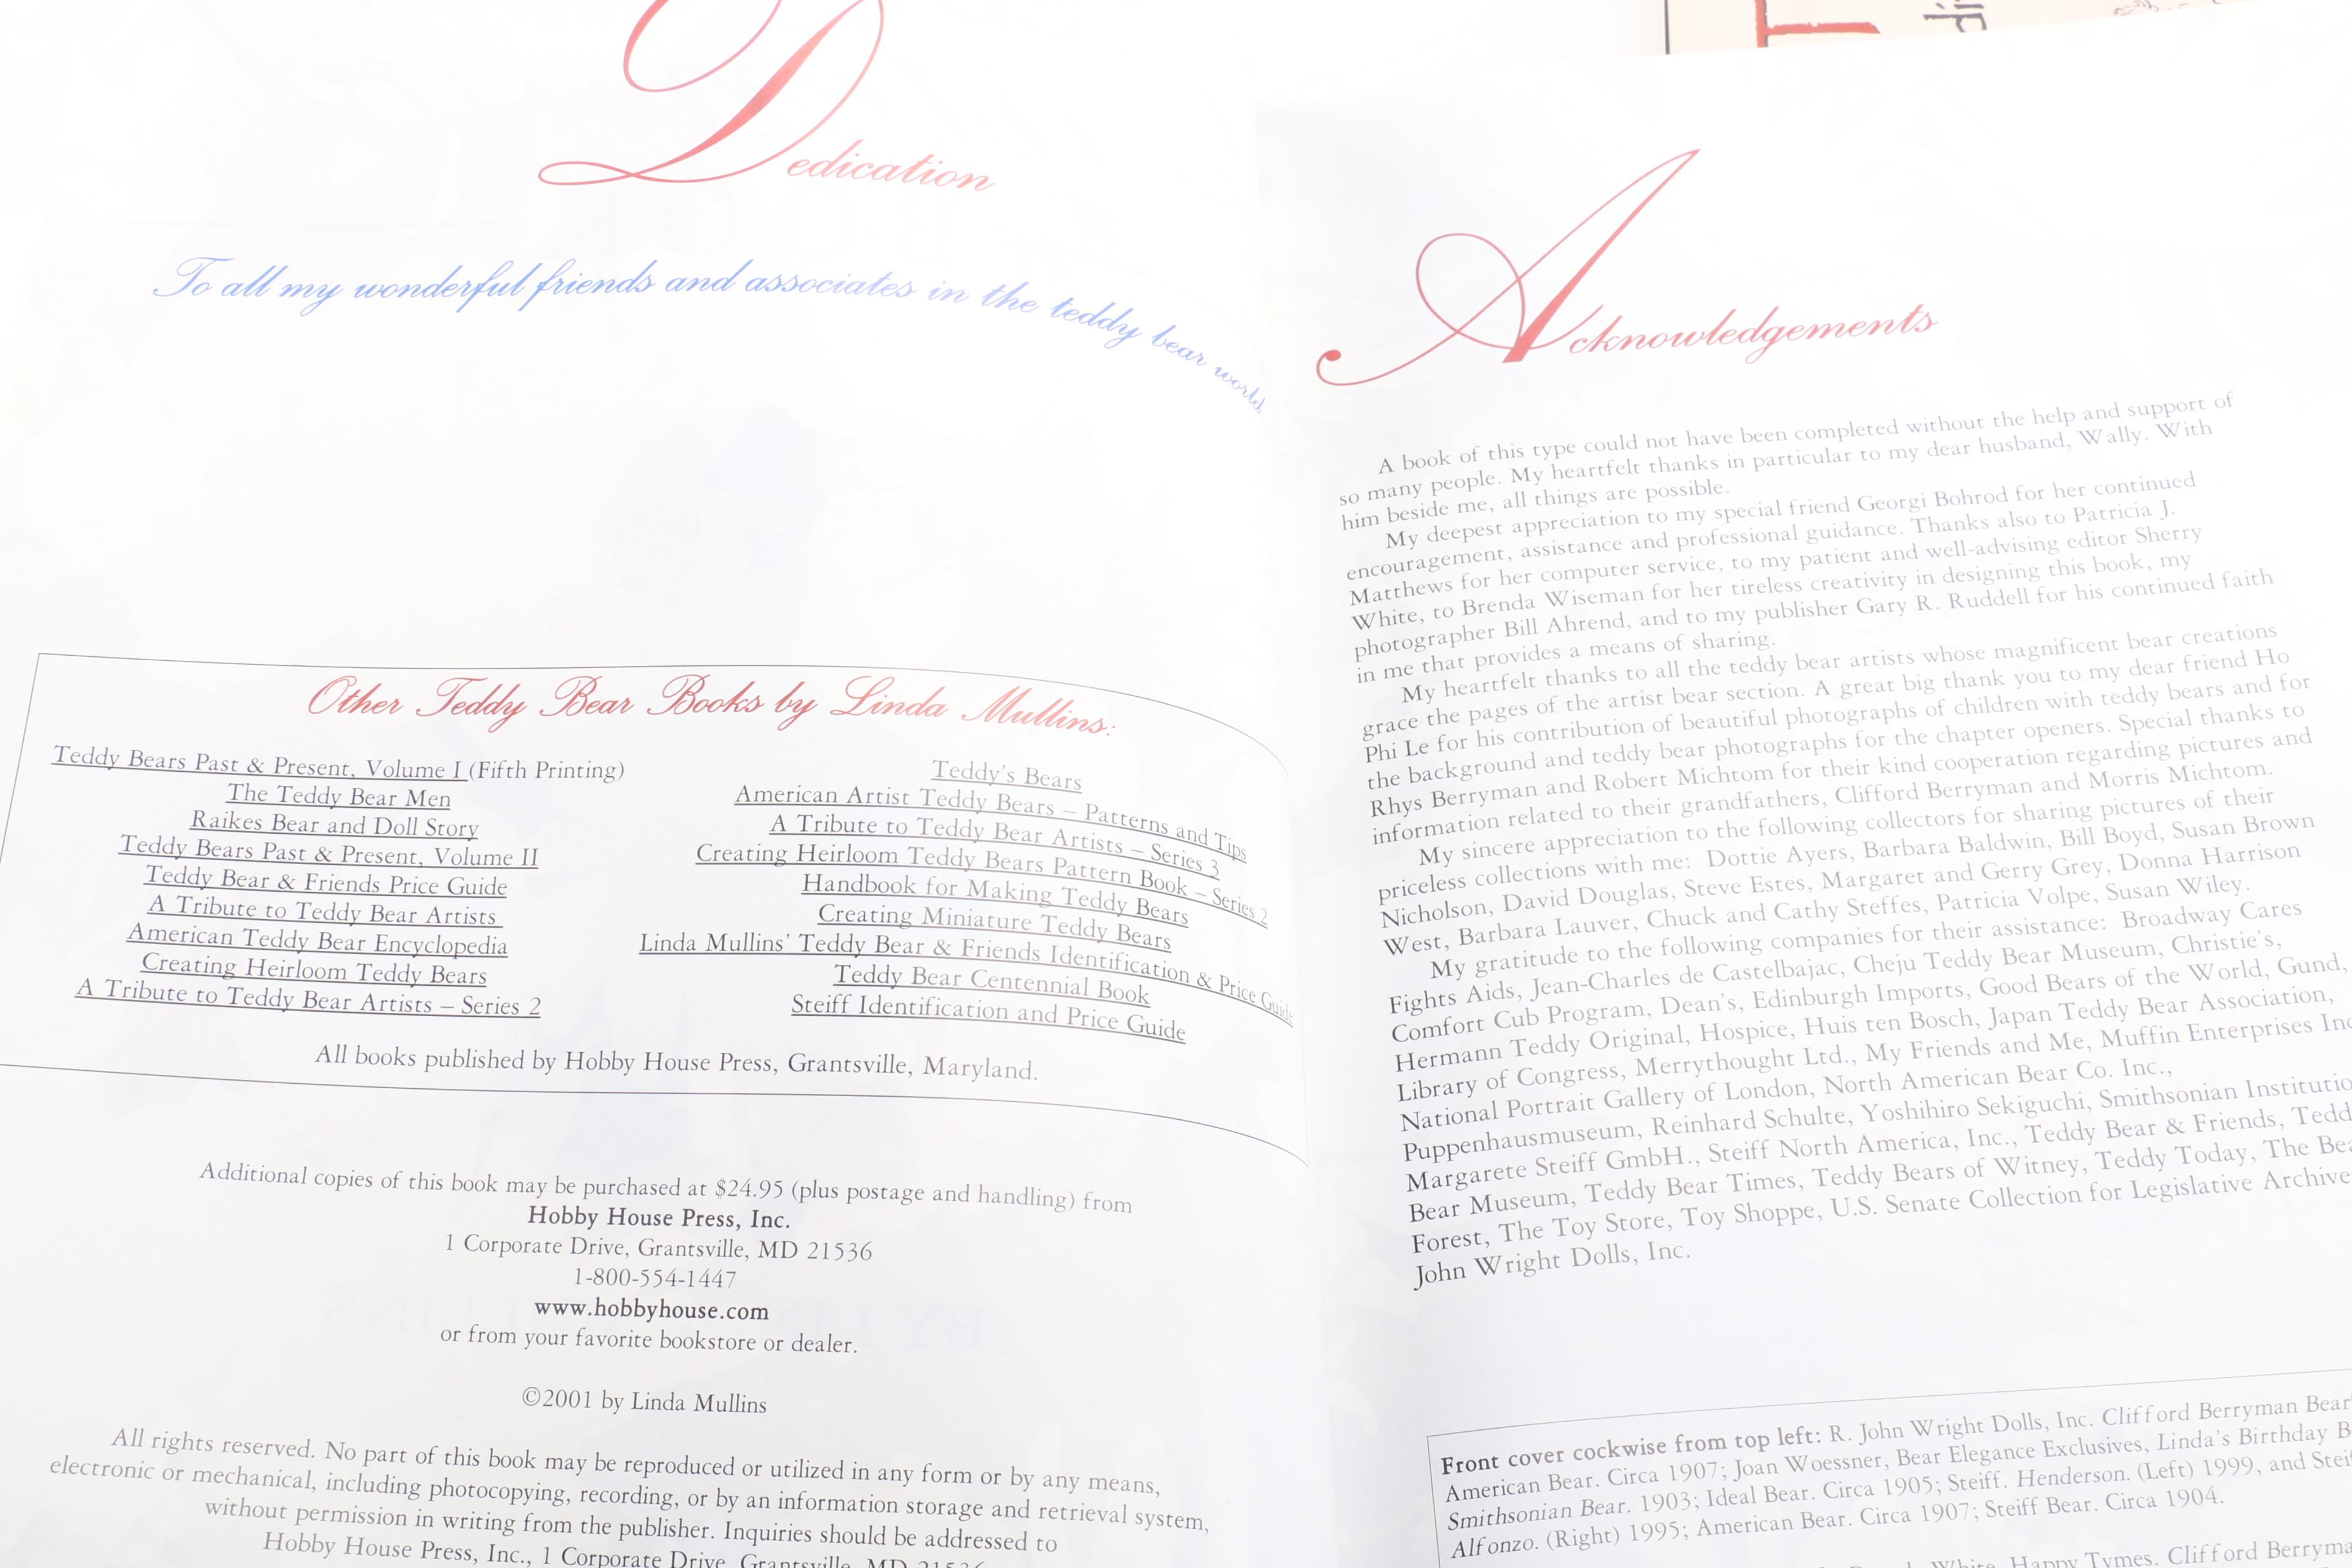 Dedication
To all my wonderful friends and associates in the teddy bear world.
Other Teddy Bear Books by Linda Mullins:
Teddy Bears Past & Present, Volume I (Fifth Printing)
The Teddy Bear Men
Raikes Bear and Doll Story
Teddy Bears Past & Present, Volume II
Teddy Bear & Friends Price Guide
A Tribute to Teddy Bear Artists
American Teddy Bear Encyclopedia
Creating Heirloom Teddy Bears
A Tribute to Teddy Bear Artists – Series 2
Teddy's Bears
American Artist Teddy Bears – Patterns and Tips
A Tribute to Teddy Bear Artists – Series 3
Creating Heirloom Teddy Bears Pattern Book – Series 2
Handbook for Making Teddy Bears
Creating Miniature Teddy Bears
Linda Mullins' Teddy Bear & Friends Identification & Price Guide
Teddy Bear Centennial Book
Steiff Identification and Price Guide
All books published by Hobby House Press, Grantsville, Maryland.
Additional copies of this book may be purchased at $24.95 (plus postage and handling) from
Hobby House Press, Inc.
1 Corporate Drive, Grantsville, MD 21536
1-800-554-1447
www.hobbyhouse.com
or from your favorite bookstore or dealer.
©2001 by Linda Mullins
All rights reserved. No part of this book may be reproduced or utilized in any form or by any means,
electronic or mechanical, including photocopying, recording, or by an information storage and retrieval system,
without permission in writing from the publisher. Inquiries should be addressed to
Hobby House Press, Inc., 1 Corporate Drive, Grantsville, MD 21536
Acknowledgements
A book of this type could not have been completed without the help and support of
so many people. My heartfelt thanks in particular to my dear husband, Wally. With
him beside me, all things are possible.
My deepest appreciation to my special friend Georgi Bohrod for her continued
encouragement, assistance and professional guidance. Thanks also to Patricia J.
Matthews for her computer service, to my patient and well-advising editor Sherry
White, to Brenda Wiseman for her tireless creativity in designing this book, my
photographer Bill Ahrend, and to my publisher Gary R. Ruddell for his continued faith
in me that provides a means of sharing.
My heartfelt thanks to all the teddy bear artists whose magnificent bear creations
grace the pages of the artist bear section. A great big thank you to my dear friend Ho
Phi Le for his contribution of beautiful photographs of children with teddy bears and for
the background and teddy bear photographs for the chapter openers. Special thanks to
Rhys Berryman and Robert Michtom for their kind cooperation regarding pictures and
information related to their grandfathers, Clifford Berryman and Morris Michtom.
My sincere appreciation to the following collectors for sharing pictures of their
priceless collections with me: Dottie Ayers, Barbara Baldwin, Bill Boyd, Susan Brown
Nicholson, David Douglas, Steve Estes, Margaret and Gerry Grey, Donna Harrison
West, Barbara Lauver, Chuck and Cathy Steffes, Patricia Volpe, Susan Wiley.
My gratitude to the following companies for their assistance: Broadway Cares
Fights Aids, Jean-Charles de Castelbajac, Cheju Teddy Bear Museum, Christie's,
Comfort Cub Program, Dean's, Edinburgh Imports, Good Bears of the World, Gund,
Hermann Teddy Original, Hospice, Huis ten Bosch, Japan Teddy Bear Association,
Library of Congress, Merrythought Ltd., My Friends and Me, Muffin Enterprises Inc
National Portrait Gallery of London, North American Bear Co. Inc.,
Puppenhausmuseum, Reinhard Schulte, Yoshihiro Sekiguchi, Smithsonian Institutio
Margarete Steiff GmbH., Steiff North America, Inc., Teddy Bear & Friends, Tedd
Bear Museum, Teddy Bear Times, Teddy Bears of Witney, Teddy Today, The Bea
Forest, The Toy Store, Toy Shoppe, U.S. Senate Collection for Legislative Archive
John Wright Dolls, Inc.
Front cover cockwise from top left: R. John Wright Dolls, Inc. Clifford Berryman Bear
American Bear. Circa 1907; Joan Woessner, Bear Elegance Exclusives, Linda's Birthday B
Smithsonian Bear. 1903; Ideal Bear. Circa 1905; Steiff. Henderson. (Left) 1999, and Stei
Alfonzo. (Right) 1995; American Bear. Circa 1907; Steiff Bear. Circa 1904.
White, Happy Tymes. Clifford Berryma